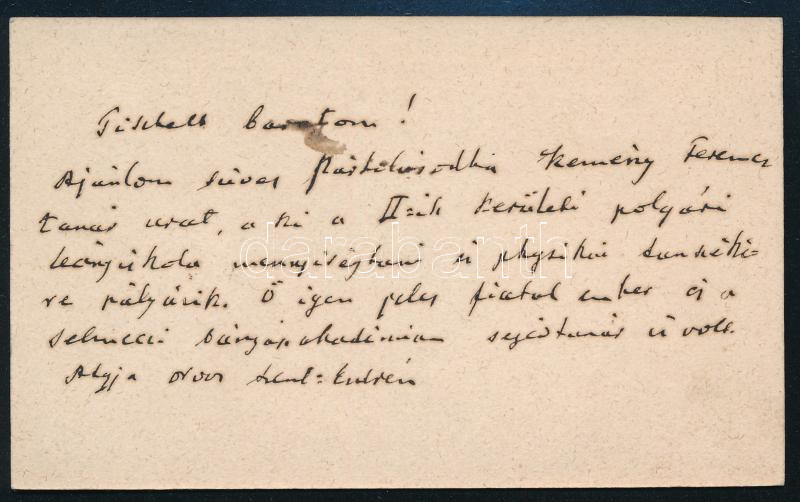 Tisztelt barátom!
Ajánlom szives pártolásodba Kemény Ferencz
tanár urat, a ki a II=ik kerületi polgári
leányiskola mennyiségtani és physikai tanszéké-
re pályázik. Ő igen jeles fiatal ember és a
selmeczi bányászakadémián segédtanár is volt.
Atyja orvos Szent=Endrén
darabanth